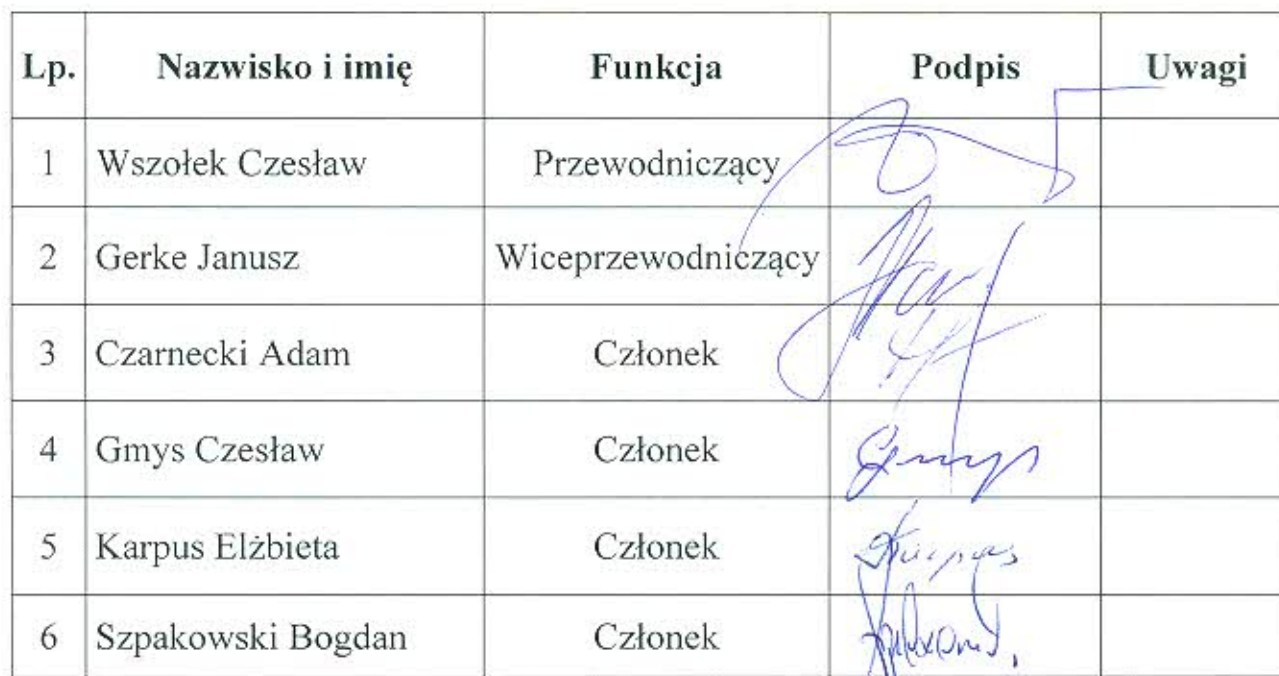 Lp. Nazwisko i imię Funkcja Podpis Uwagi
1 Wszołek Czesław Przewodniczący
2 Gerke Janusz Wiceprzewodniczący
3 Czarnecki Adam Członek
4 Gmys Czesław Członek Gmys
5 Karpus Elżbieta Członek
6 Szpakowski Bogdan Członek